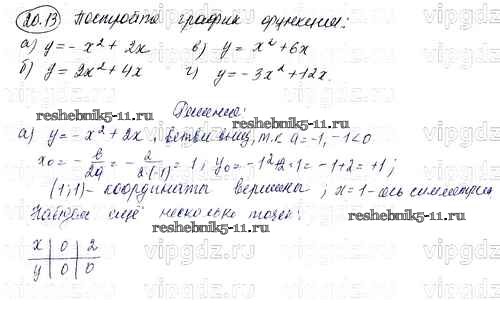 20.13 Постройте график функции:
а) y = - x² + 2x   в) y = x² + 6x
б) y = 2x² + 4x   г) y = -3x² + 12x.
reshebnik5-11.ru   reshebnik5-11.ru
Решение:
а) y = - x² + 2x, ветви вниз, т.к a = -1, -1<0
x₀ = - в/2a = - 2/2·(-1) = 1; y₀ = -1²+2·1 = -1+2 = +1;
(1;1) - координата вершины; x=1 - ось симметрии
Найдём ещё несколько точек:
x | 0 | 2
y | 0 | 0
reshebnik5-11.ru   reshebnik5-11.ru
vipgdz.ru